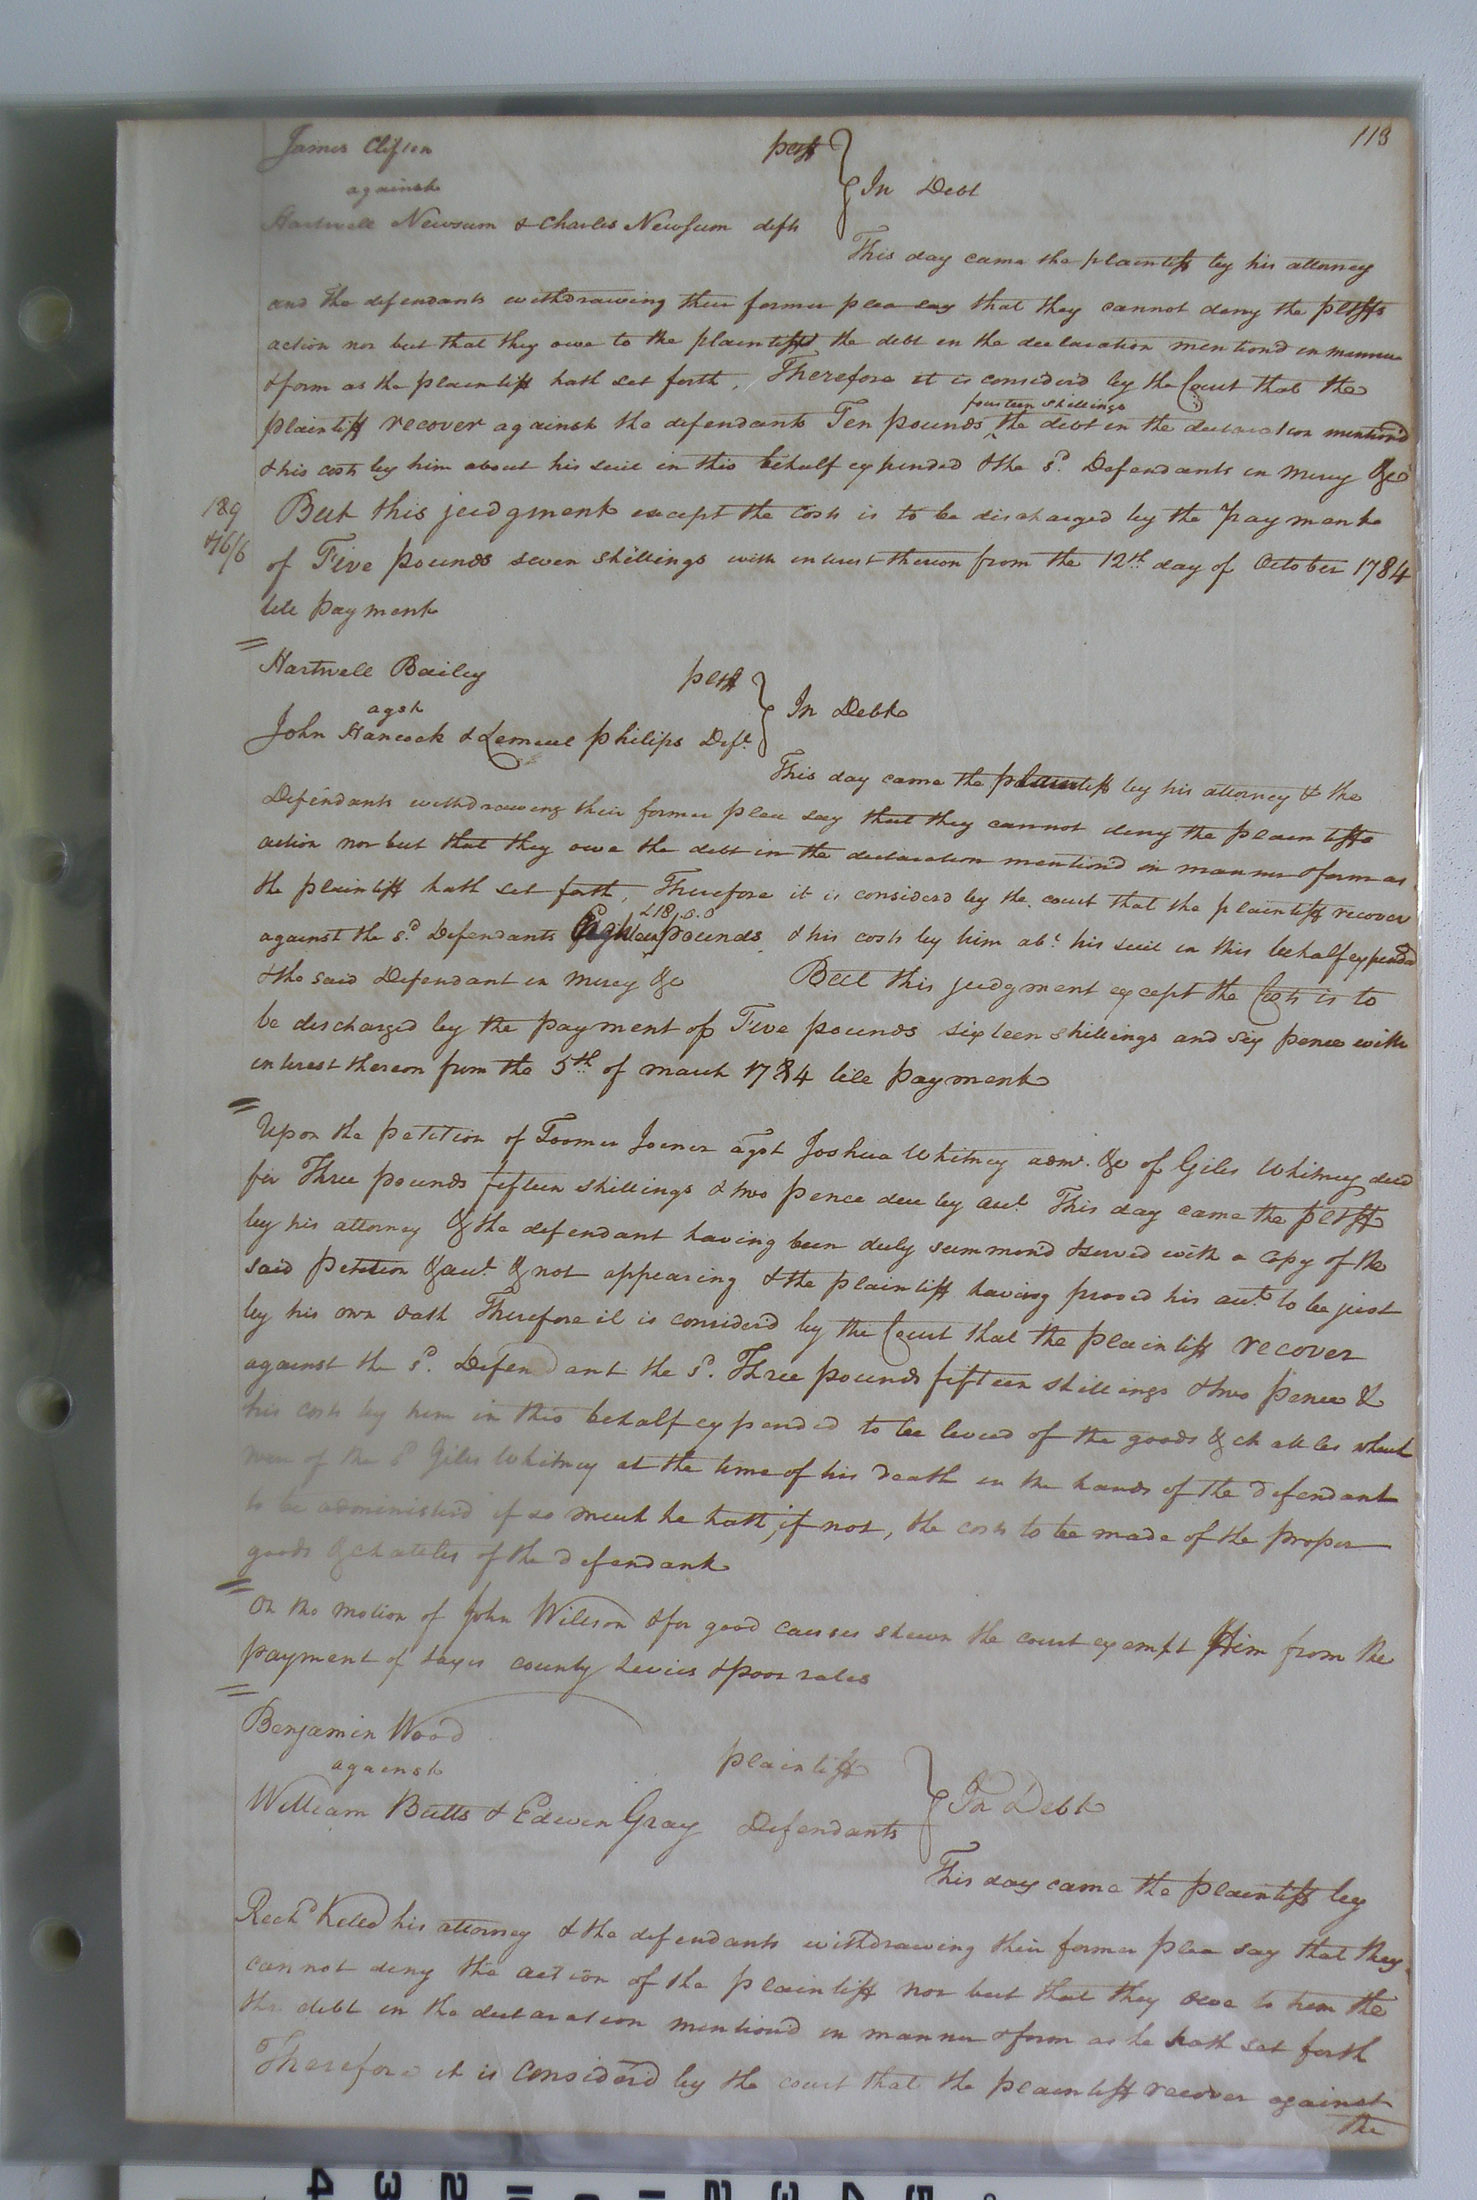 113
James Clifton pltff
against } In Debt
Hartwell Newsum & Charles Newsum defts
This day came the plaintiff by his attorney
and the defendants withdrawing their former plea say that they cannot deny the pltffs
action nor but that they owe to the plaintiff the debt in the declaration mention'd in manner
& form as the plaintiff hath set forth. Therefore it is consider'd by the Court that the
fourteen shillings
plaintiff recover against the defendants Ten pounds ^ the debt in the declaration mention'd
& his costs by him about his suit in this behalf expended & the sd. Defendants in mercy &c
189 But this judgment except the costs is to be discharged by the payment
of Five pounds seven shillings with interest thereon from the 12th day of October 1784
till payment
Hartwell Bailey pltff
agst } In Debt
John Hancock & Lemuel Philips Deft.
This day came the plaintiff by his attorney & the
Defendants withdrawing their former plea say that they cannot deny the plaintiffs
action nor but that they owe the debt in the declaration mention'd in manner & form as
the plaintiff hath set forth, Therefore it is considerd by the court that the plaintiff recover
£18.0.0
against the sd. Defendants Eighteen pounds & his costs by him abt. his suit in this behalf expended
& the said Defendant in mercy &c But this judgment except the Costs is to
be discharged by the payment of Five pounds sixteen shillings and six pence with
interest thereon from the 5th of march 1784 till payment
Upon the petition of Toomer Joiner agst Joshua Whitney admr. &c of Giles Whitney decd
for Three pounds fifteen shillings & two pence due by act. This day came the pltff
by his attorney & the defendant having been duly summon'd & served with a copy of the
said petition & act. & not appearing & the plaintiff having proved his act. to be just
by his own oath Therefore it is consider'd by the Court that the plaintiff recover
against the sd. Defendant the sd. Three pounds fifteen shillings & two pence &
his costs by him in this behalf expended to be levied of the goods & chattles which
were of the sd Giles Whitney at the time of his Death in the hands of the Defendant
to be administerd if so much he hath, if not, the costs to be made of the proper
goods & chateles of the defendant
On the motion of John Willson & for good causes shewn the court exempt Him from the
payment of taxes county Levies & poor rates
Benjamin Wood plaintiff
against } In Debt
William Butts & Edwin Gray Defendants
This day came the plaintiff by
Richd Kello his attorney & the defendants withdrawing their former plea say that they
cannot deny the action of the plaintiff nor but that they owe to him the
the debt in the declaration mention'd in manner & form as he hath set forth
Therefore it is consider'd by the court that the plaintiff recover against
the